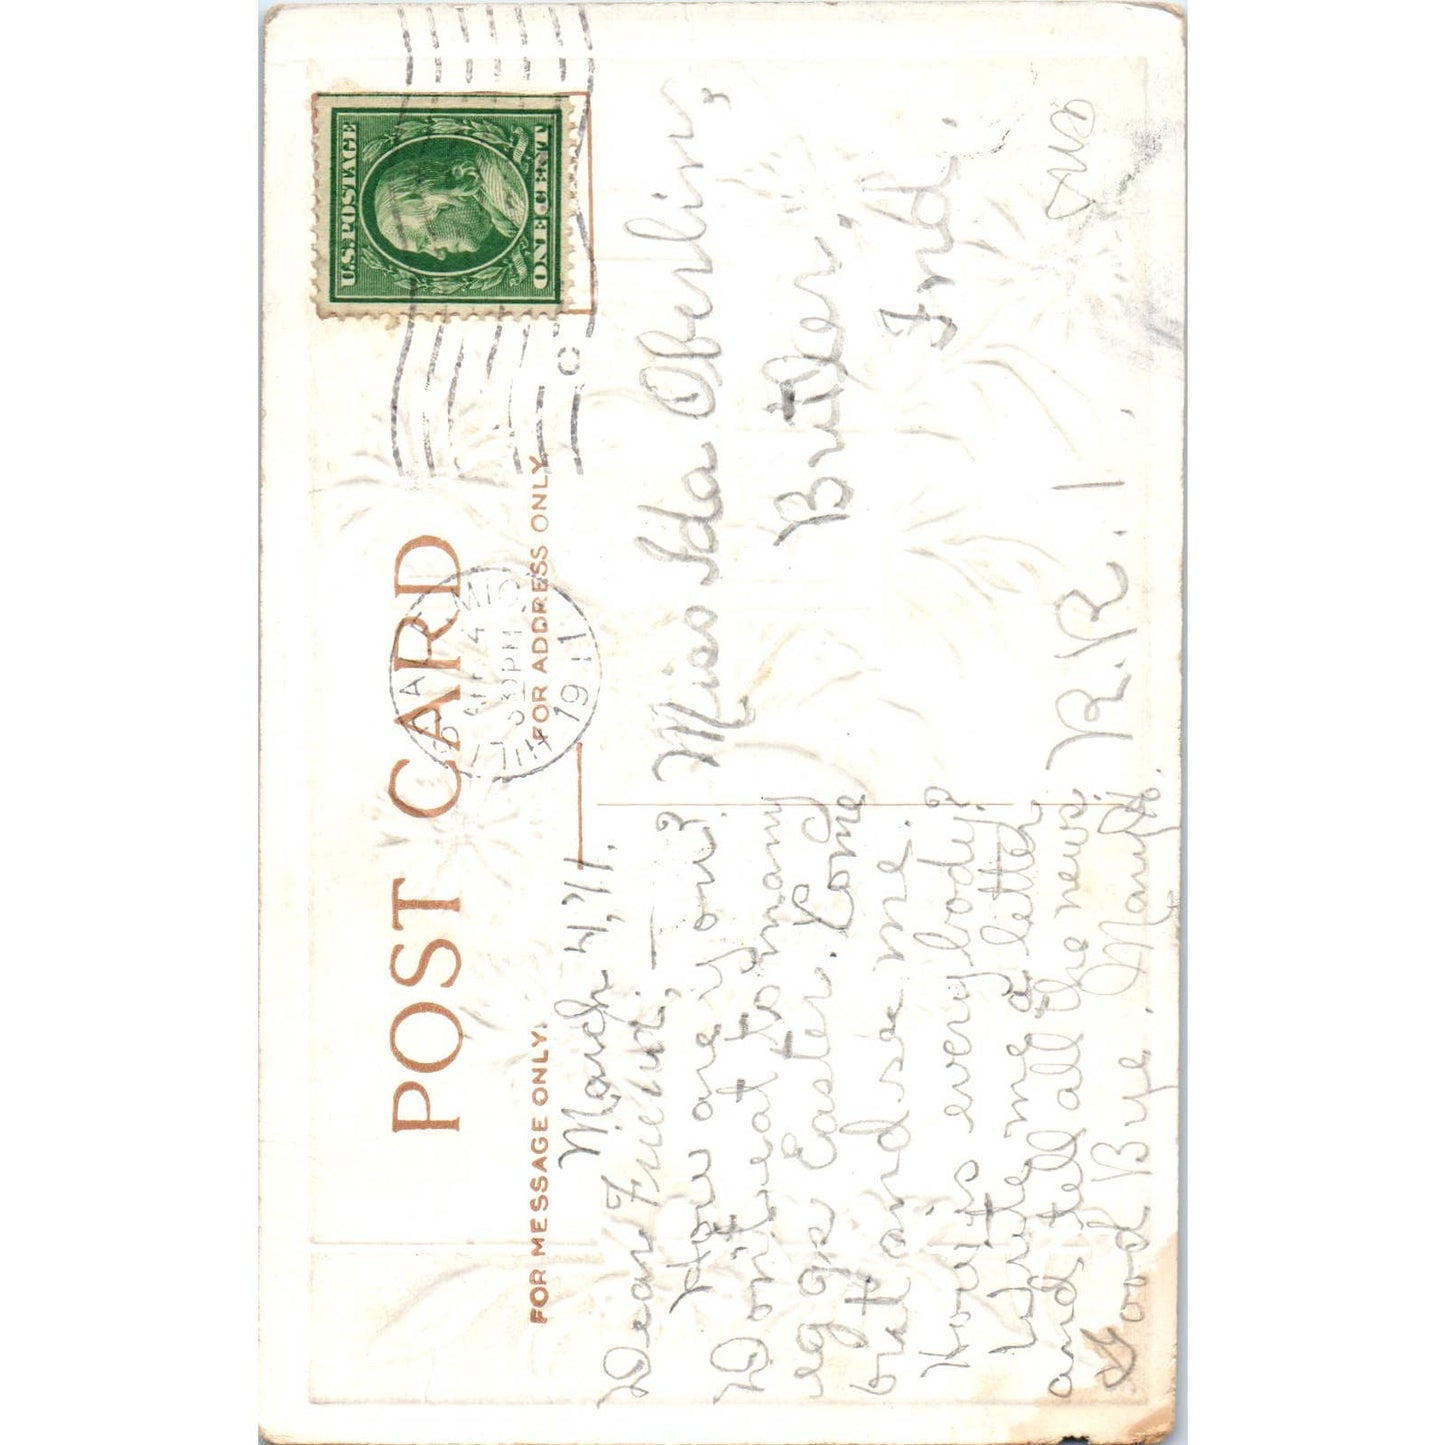 U.S. POSTAGE
ONE CENT
POST CARD
4
30 PM
1911
FOR MESSAGE ONLY.
FOR ADDRESS ONLY
March 4, 11.
Dear Friend, —
How are you?
Don't eat to many
eggs Easter. Come
out and se me.
How is everybody?
Write me a letter
and tell all the news
Good Bye.
Miss Ida Oberlin,
Butler,
Ind.
R.R. 1.